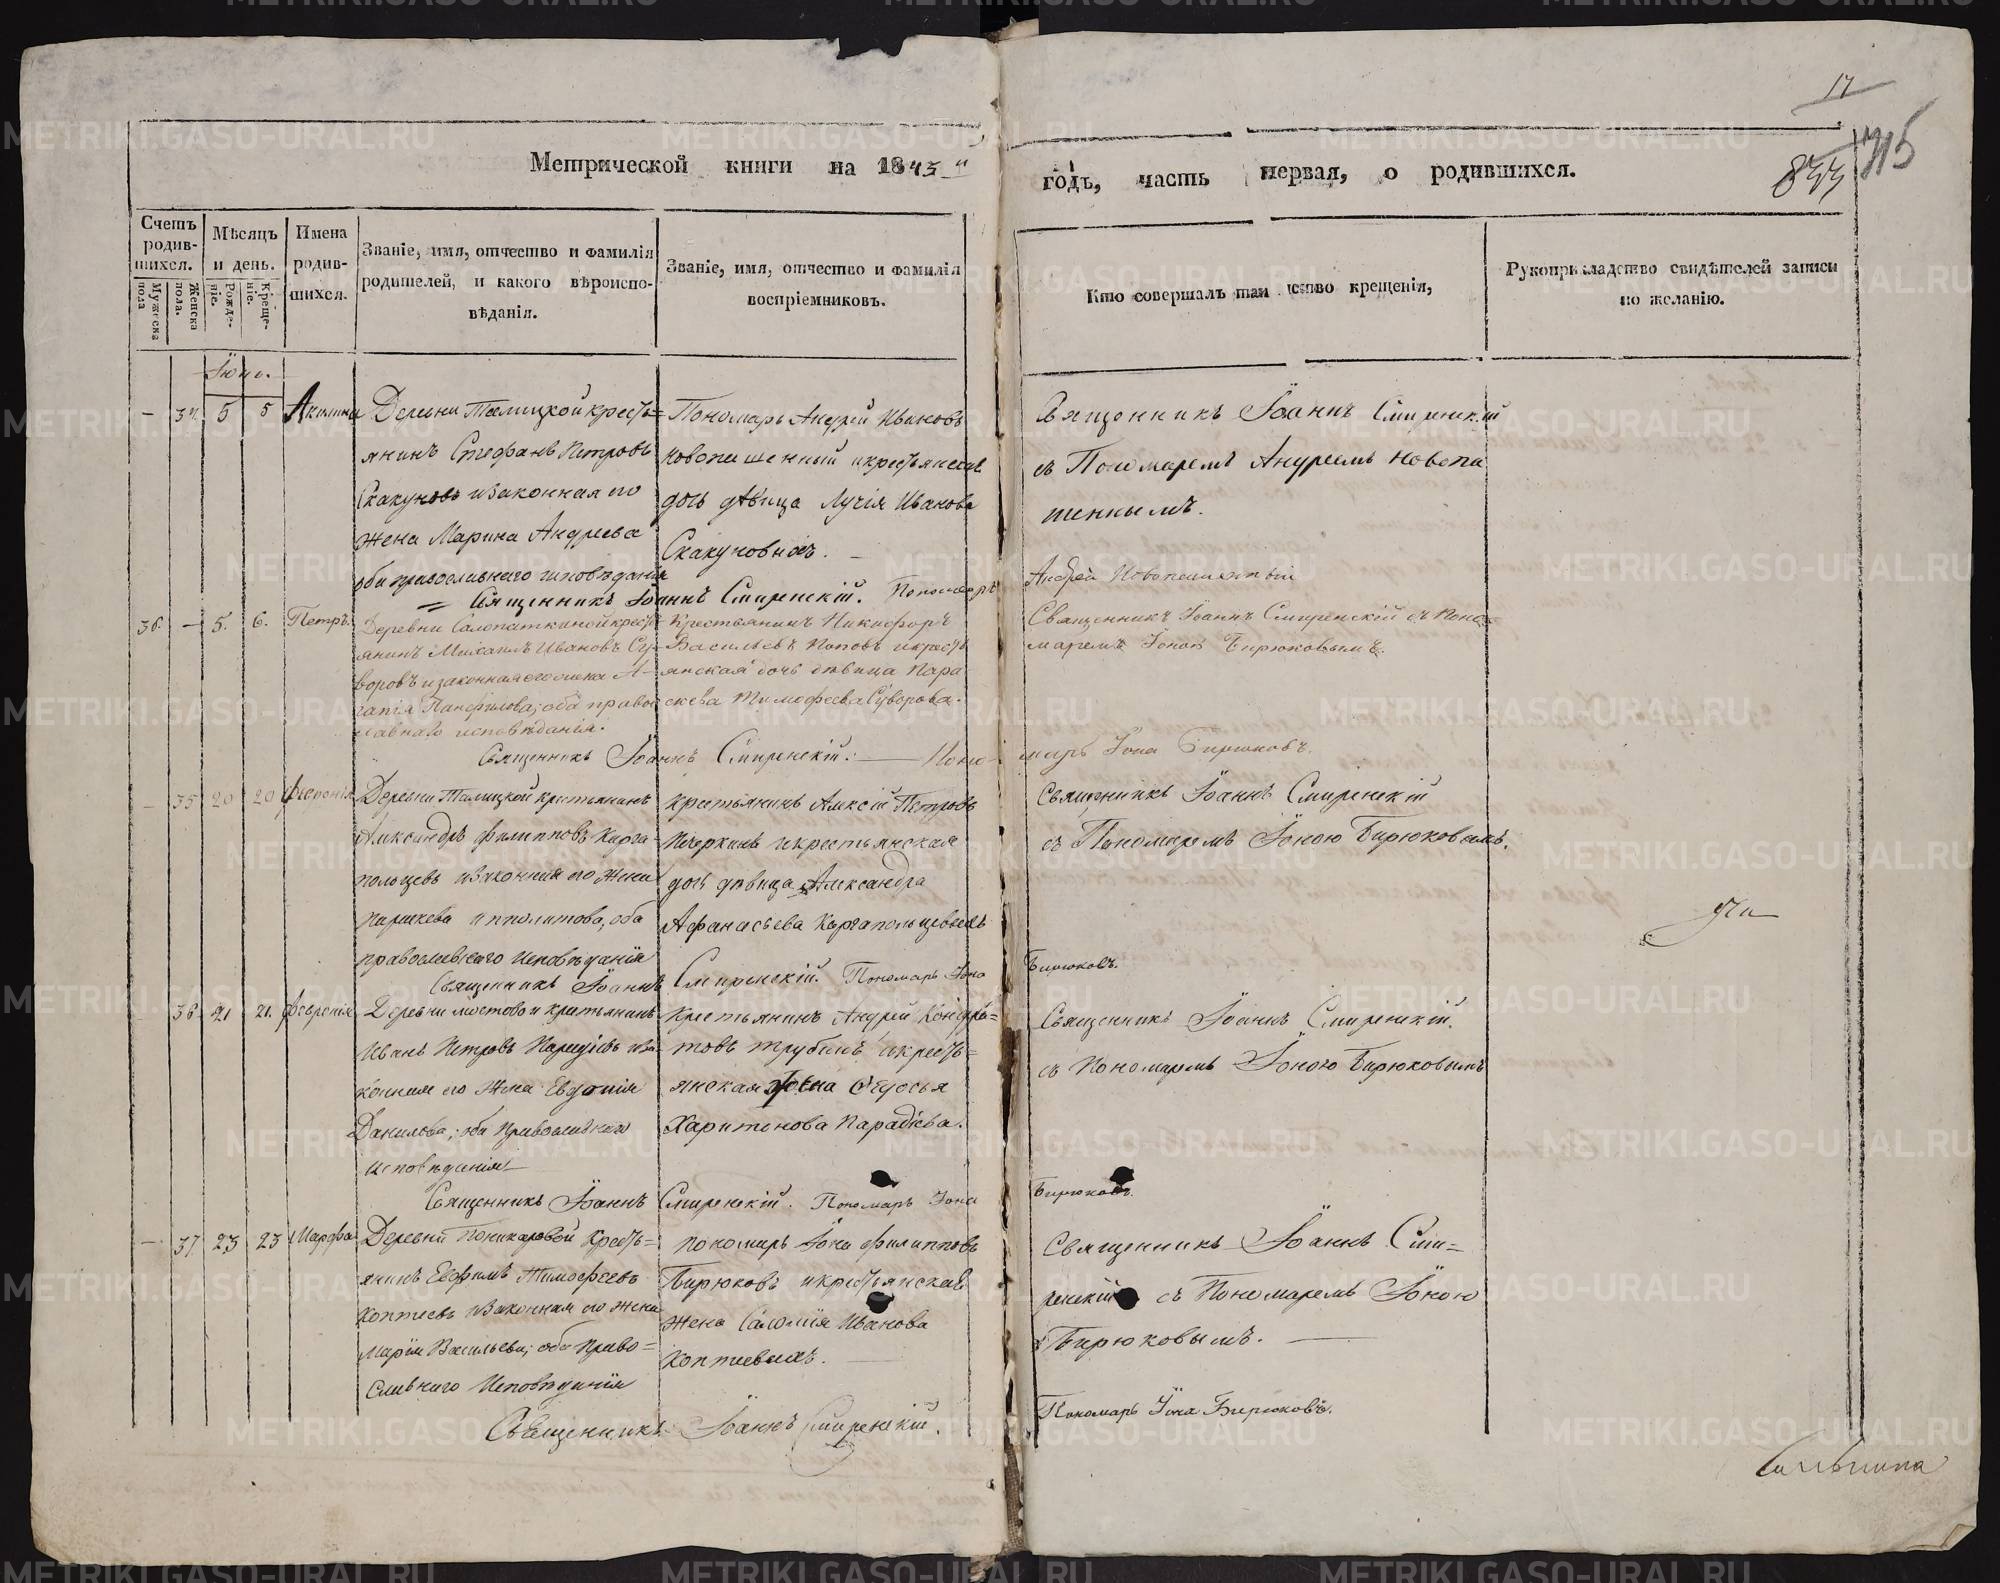 17
715
833
Метрической книги на 1843 й годъ, часть первая, о родившихся.
Счетъ родившихся.
Мужеска пола
Женска пола.
Мѣсяцъ и день.
Рожденіе.
Крещеніе.
Имена родившихся.
Званіе, имя, отчество и фамилія
родителей, и какого вѣроиспо-
вѣданія.
Званіе, имя, отчество и фамилія
воспріемниковъ.
Кто совершалъ таинство крещенія,
Рукоприкладство свидѣтелей записи
по желанію.
5 5 Акилина
Деревни Талицкой кресть=
янинъ Стефанъ Петровъ
Скакуновъ и законная его
жена Марина Андреева
оба православнаго исповѣданія
Пономарь Андрей Ивановъ
Новопашенный и крестьянская
дочь дѣвица Лучія Иванова
Скакуновыхъ.
Священникъ Іоаннъ Смиренскій
съ Пономаремъ Андреемъ Новопа
шеннымъ.
Священникъ Іоаннъ Смиренскій. Пономарь Андрей Новопашенный
36. — 5. 6. Петръ.
Деревни Солопаткиной кресть-
янинъ Михаилъ Ивановъ Су-
воровъ и законная его жена А-
гапія Панфилова; оба право
славнаго исповѣданія.
Крестьянинъ Никифоръ
Васильевъ Поповъ и кресть
янская дочь дѣвица Пара
скева Тимофеева Суворова.
Священникъ Іоаннъ Смиренскій съ Поно-
маремъ Іоною Бирюковымъ.
Священникъ Іоаннъ Смиренскій. — Пономарь Іона Бирюковъ.
— 35 20 20
Деревни Талицкой крестьянинъ
Александръ Филипповъ Карга-
польцевъ и законная его жена
Параскева Ипполитова, оба
православнаго исповѣданія
крестьянинъ Алексій Петровъ
Печеркинъ и крестьянская
дочь дѣвица Александра
Афанасьева Каргапольцевыхъ
Священникъ Іоаннъ Смиренскій
съ Пономаремъ Іоною Бирюковымъ.
Священникъ Іоаннъ Смиренскій. Пономарь Іона Бирюковъ.
— 36 21 21. Февронія
Деревни Мостовой крестьянинъ
Иванъ Петровъ
конная его жена Евдокія
Данилова; оба православнаго
исповѣданія
Крестьянинъ Андрей Кондра-
товъ Трубинъ и кресть=
янская жена Федосья
Харитонова Парадѣева.
Священникъ Іоаннъ Смиренскій.
съ Пономаремъ Іоною Бирюковымъ
Священникъ Іоаннъ Смиренскій. Пономарь Іона Бирюковъ.
— 37 23 23 Марфа
Деревни Поникаровой Кресть=
янинъ Евфимъ Тимофеевъ
Коптеевъ и законная его жена
Марія Васильева; оба Право=
славнаго Исповѣданія
пономарь Іона Филипповъ
Бирюковъ и крестьянская
жена Саломія Иванова
Коптевыхъ.
Священникъ Іоаннъ Сми=
ренскій съ Пономаремъ Іоною
Бирюковымъ.
Священникъ Іоаннъ Смиренскій.
Пономарь Іона Бирюковъ.
METRIKI.GASO-URAL.RU